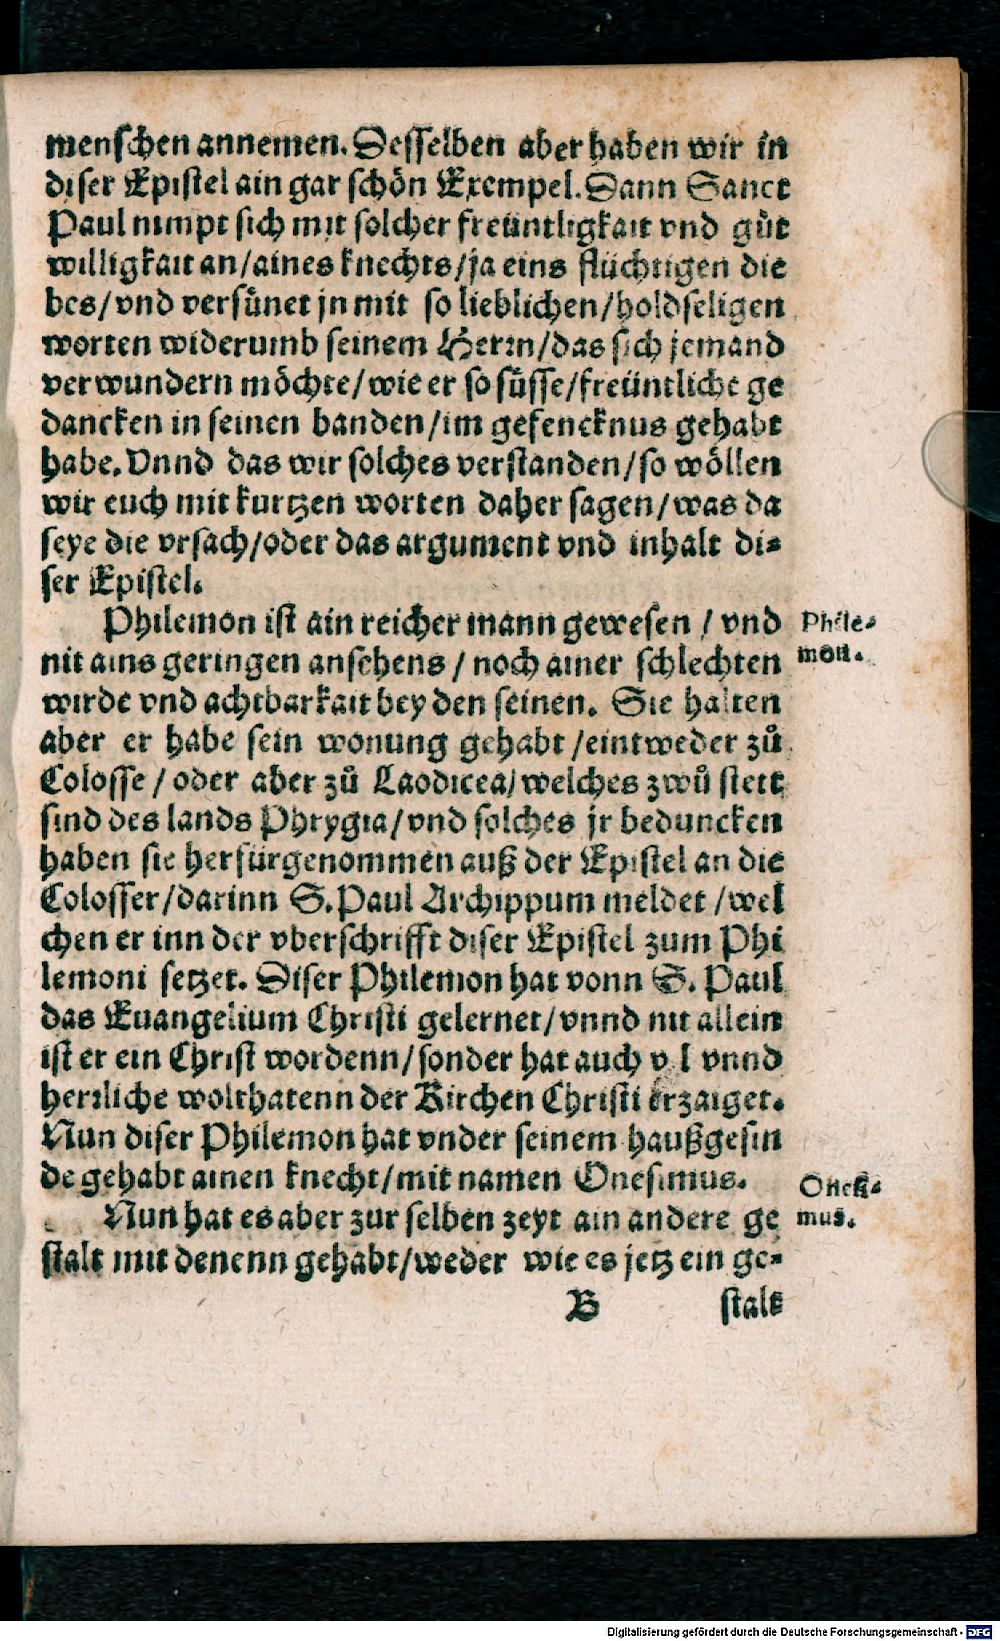 menschen annemen. Desselben aber haben wir in
diser Epistel ain gar schön Exempel. Dann Sanct
Paul nimpt sich mit solcher freüntligkait vnd gůt
willigkait an/aines knechts/ja eins flüchtigen die
bes/vnd versünet jn mit so lieblichen/holdseligen
worten widerumb seinem Herrn/das sich jemand
verwundern möchte/wie er so süsse/freüntliche ge
dancken in seinen banden/im gefencknus gehabt
habe. Vnnd das wir solches verstanden/so wöllen
wir euch mit kurtzen worten daher sagen/was da
seye die vrsach/oder das argument vnd inhalt di-
ser Epistel.
Philemon ist ain reicher mann gewesen / vnd
Phile-
nit ains geringen ansehens / noch ainer schlechten
mon.
wirde vnd achtbarkait bey den seinen. Sie halten
aber er habe sein wonung gehabt /eintweder zů
Colosse / oder aber zů Laodicea/ welches zwů stett
sind des lands Phrygia/vnd solches jr beduncken
haben sie herfürgenommen auß der Epistel an die
Colosser/darinn S. Paul Archippum meldet /wel
chen er inn der vberschrifft diser Epistel zum Phi
lemoni setzet. Diser Philemon hat vonn S. Paul
das Euangelium Christi gelernet/vnnd nit allein
ist er ein Christ wordenn/sonder hat auch v l vnnd
herrliche wolthatenn der Kirchen Christi erzaiget.
Nun diser Philemon hat vnder seinem haußgesin
de gehabt ainen knecht/mit namen Onesimus.
Onesi-
Nun hat es aber zur selben zeyt ain andere ge
mus.
stalt mit denenn gehabt/weder wie es jetz ein ge-
B stalt
Digitalisierung gefördert durch die Deutsche Forschungsgemeinschaft - DFG